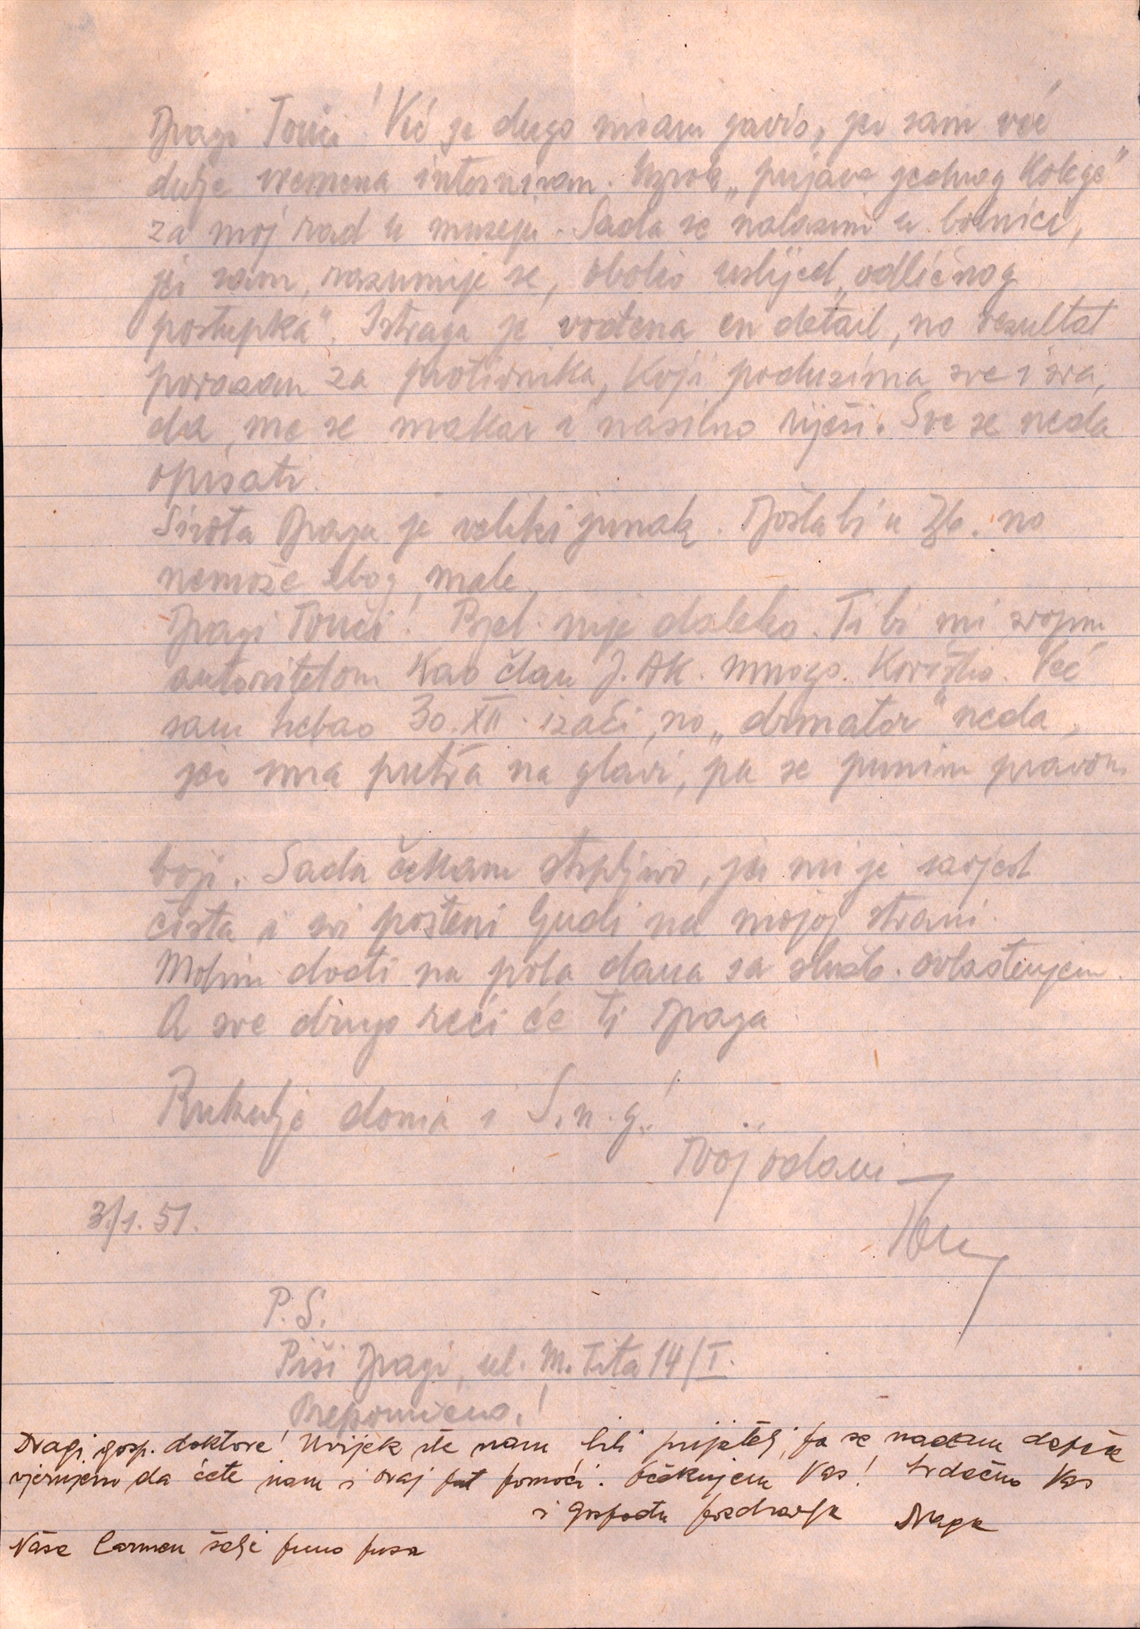 Dragi Tonči! Već je dugo nisam javio, jer sam već
dulje vremena interniran. Uzrok „prijava jednog kolege"
za moj rad u muzeju. Sada se nalazim u bolnici,
jer sam, razumije se, obolio uslijed „odličnog
postupka". Istraga je vođena en detail, no rezultat
porazan za protivnika, koji poduzima sve i sva,
da me se makar i nasilno riješi. Sve se neda
opisati.
Sirota Draga je veliki junak. Došla bi u Zgb. no
nemože zbog male.
Dragi Tonči! Bjel. nije daleko. Ti bi mi svojim
autoritetom kao član J. AK. mnogo koristio. Već
sam trebao 30. XII. izaći, no „drmator" neda,
jer ima putra na glavi, pa se punim pravom
boji. Sada čekam strpljivo, jer mi je savjest
čista i svi pošteni ljudi na mojoj strani.
Molim dođi na pola dana sa služb. ovlaštenjem.
A sve drugo reći će ti Draga
Rukulje doma i S. n. g.!
Tvoj odani
3/1. 51.
P. S.
Piši Dragi, ul. M. Tita 14/I.
Preporučeno!
Dragi gosp. doktore! Uvijek ste nam bili prijatelj, pa se nadamo
vjerujemo da ćete nam i ovaj put pomoći. Očekujem Vas! Srdačno Vas
i gospođu pozdravlja Draga
Vaša Carmen šalje puno pusa